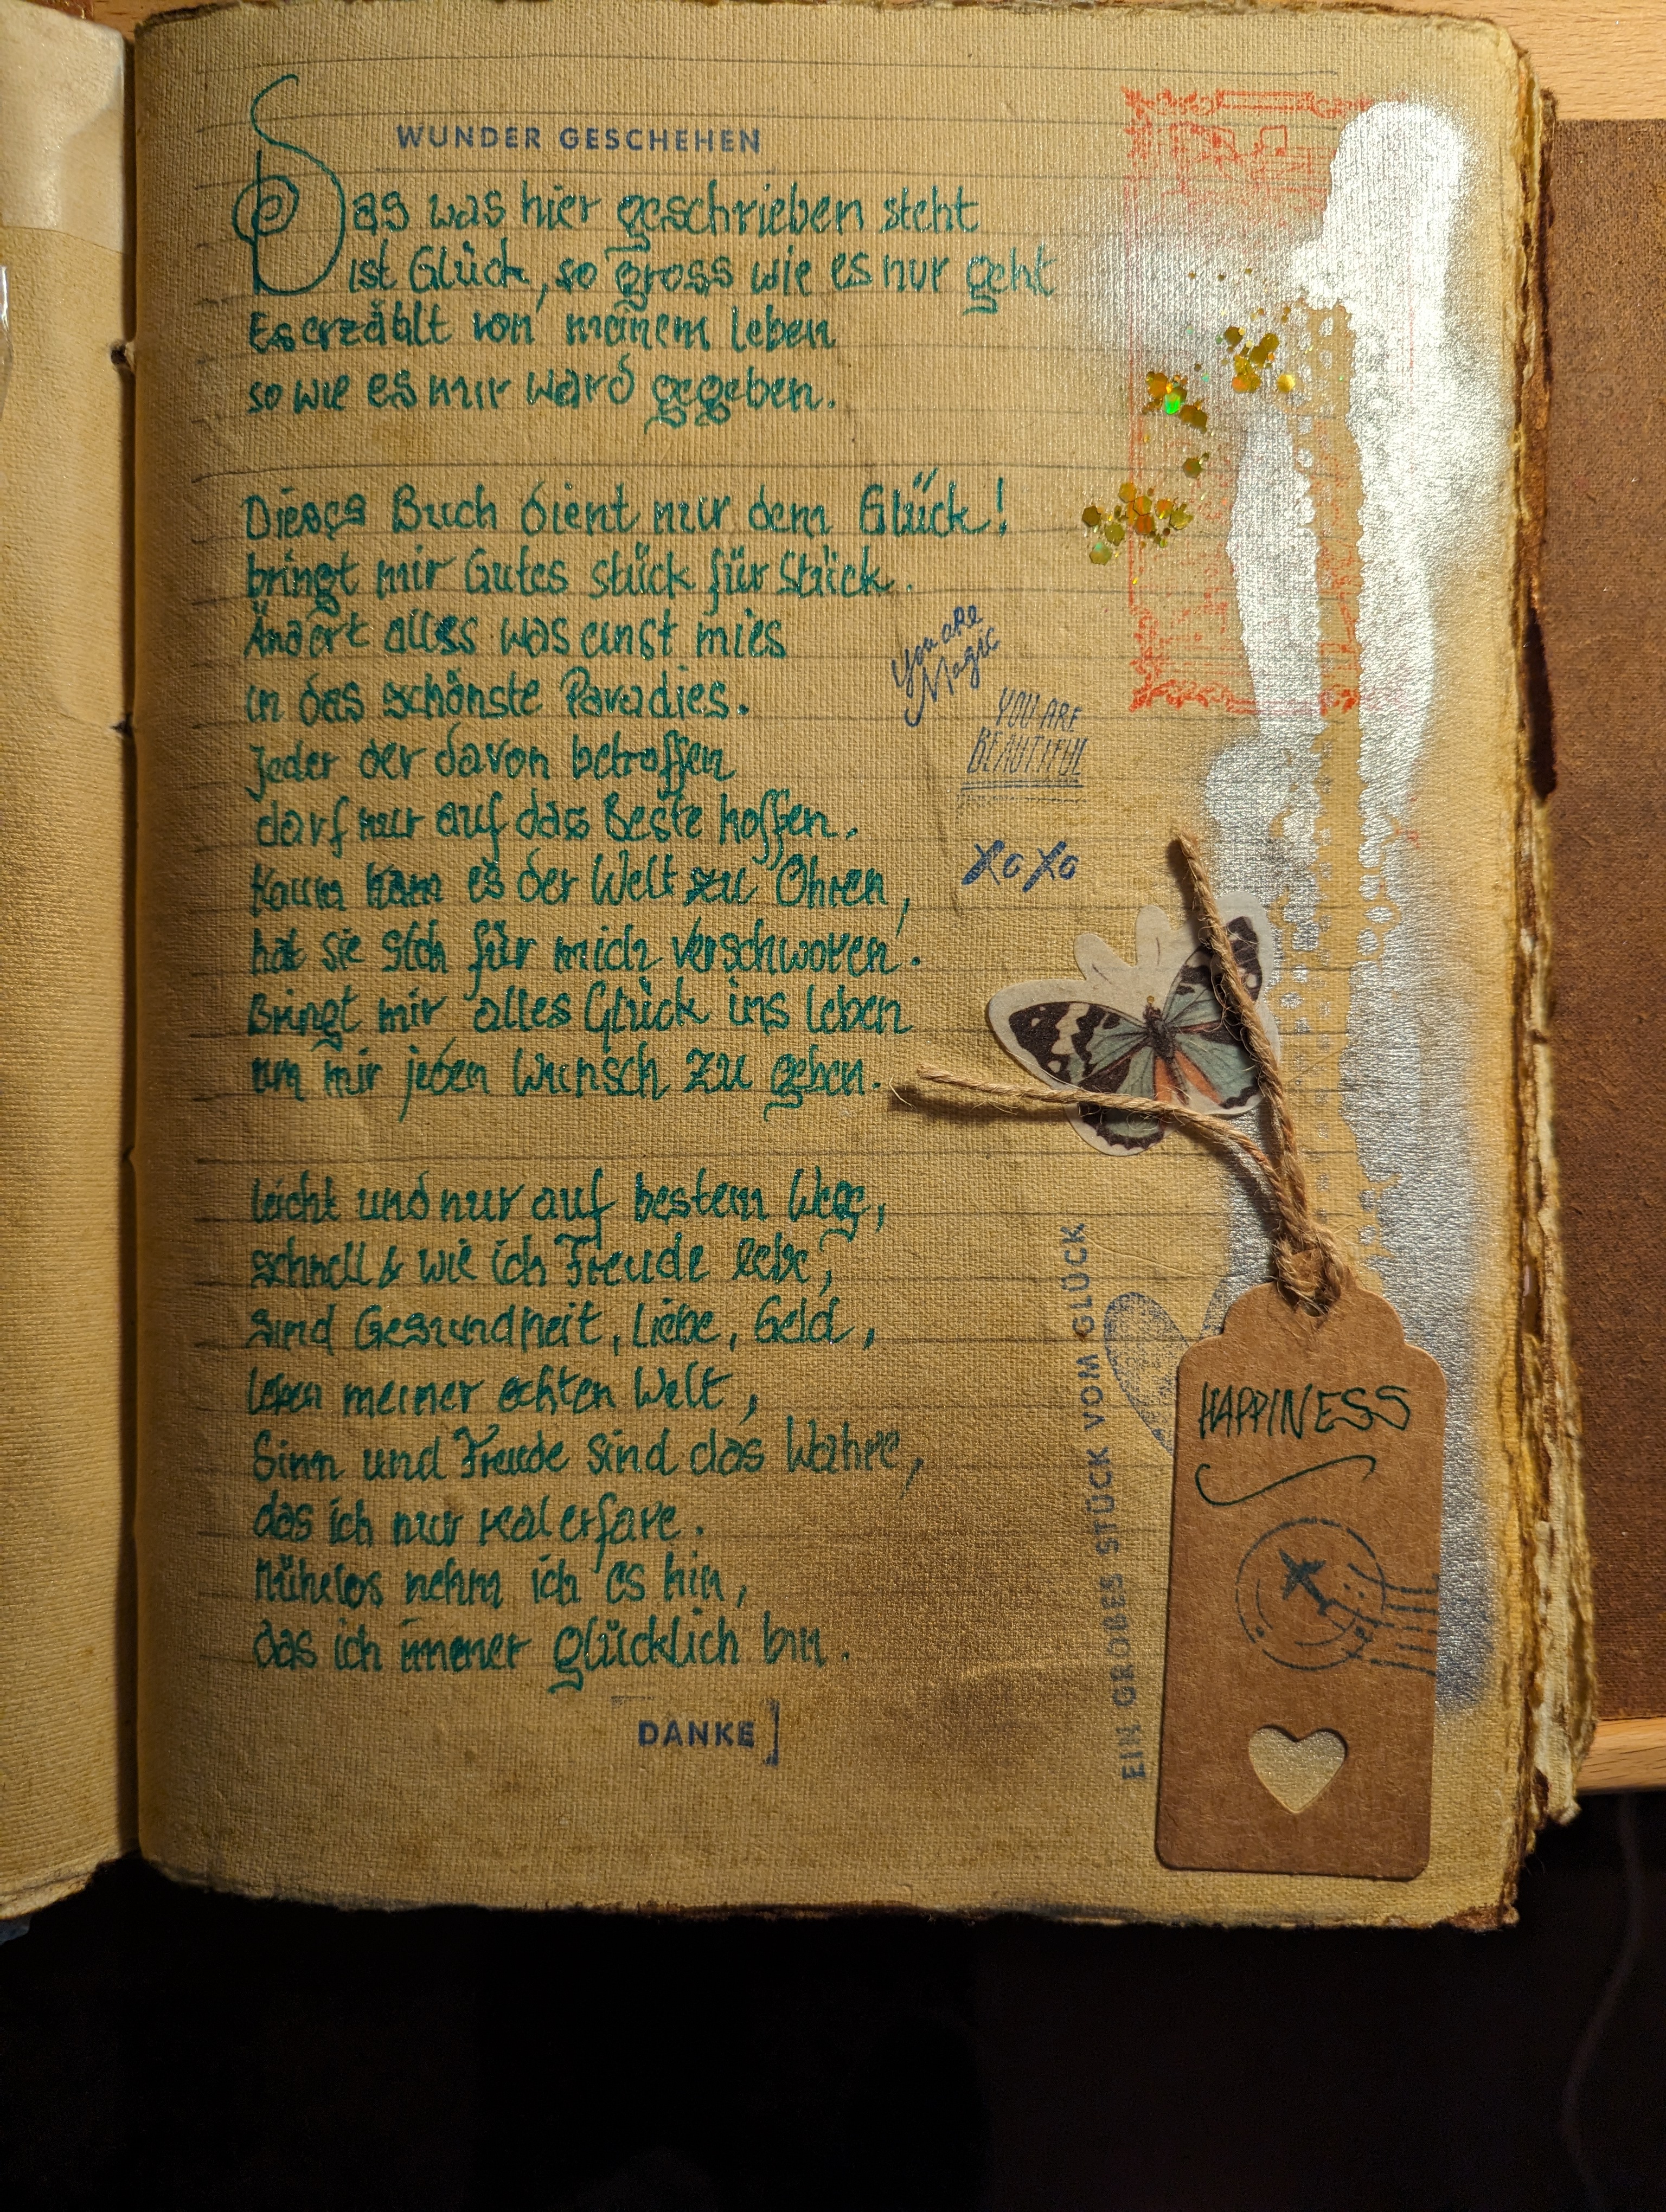 WUNDER GESCHEHEN
Das was hier geschrieben steht
ist Glück, so gross wie es nur geht
Es erzählt von meinem Leben
so wie es mir ward gegeben.
Dieses Buch dient nur dem Glück!
bringt mir Gutes stück für Stück.
Ändert alles was einst mies
in das schönste Paradies.
Jeder der davon betroffen
darf nur auf das Beste hoffen.
Kaum kam es der Welt zu Ohren,
hat sie sich für mich verschworen.
Bringt mir alles Glück ins Leben
um mir jeden Wunsch zu geben.
Leicht und nur auf bestem Wege,
schnell & wie ich Freude lebe,
sind Gesundheit, Liebe, Geld,
Leben meiner echten Welt,
Sinn und Freude sind das Wahre,
das ich nur real erfare.
Mühelos nehm ich es hin,
das ich immer glücklich bin.
DANKE]
You are
Magic
YOU ARE
BEAUTIFUL
XoXo
EIN GROßES STÜCK VOM GLÜCK
HAPPINESS